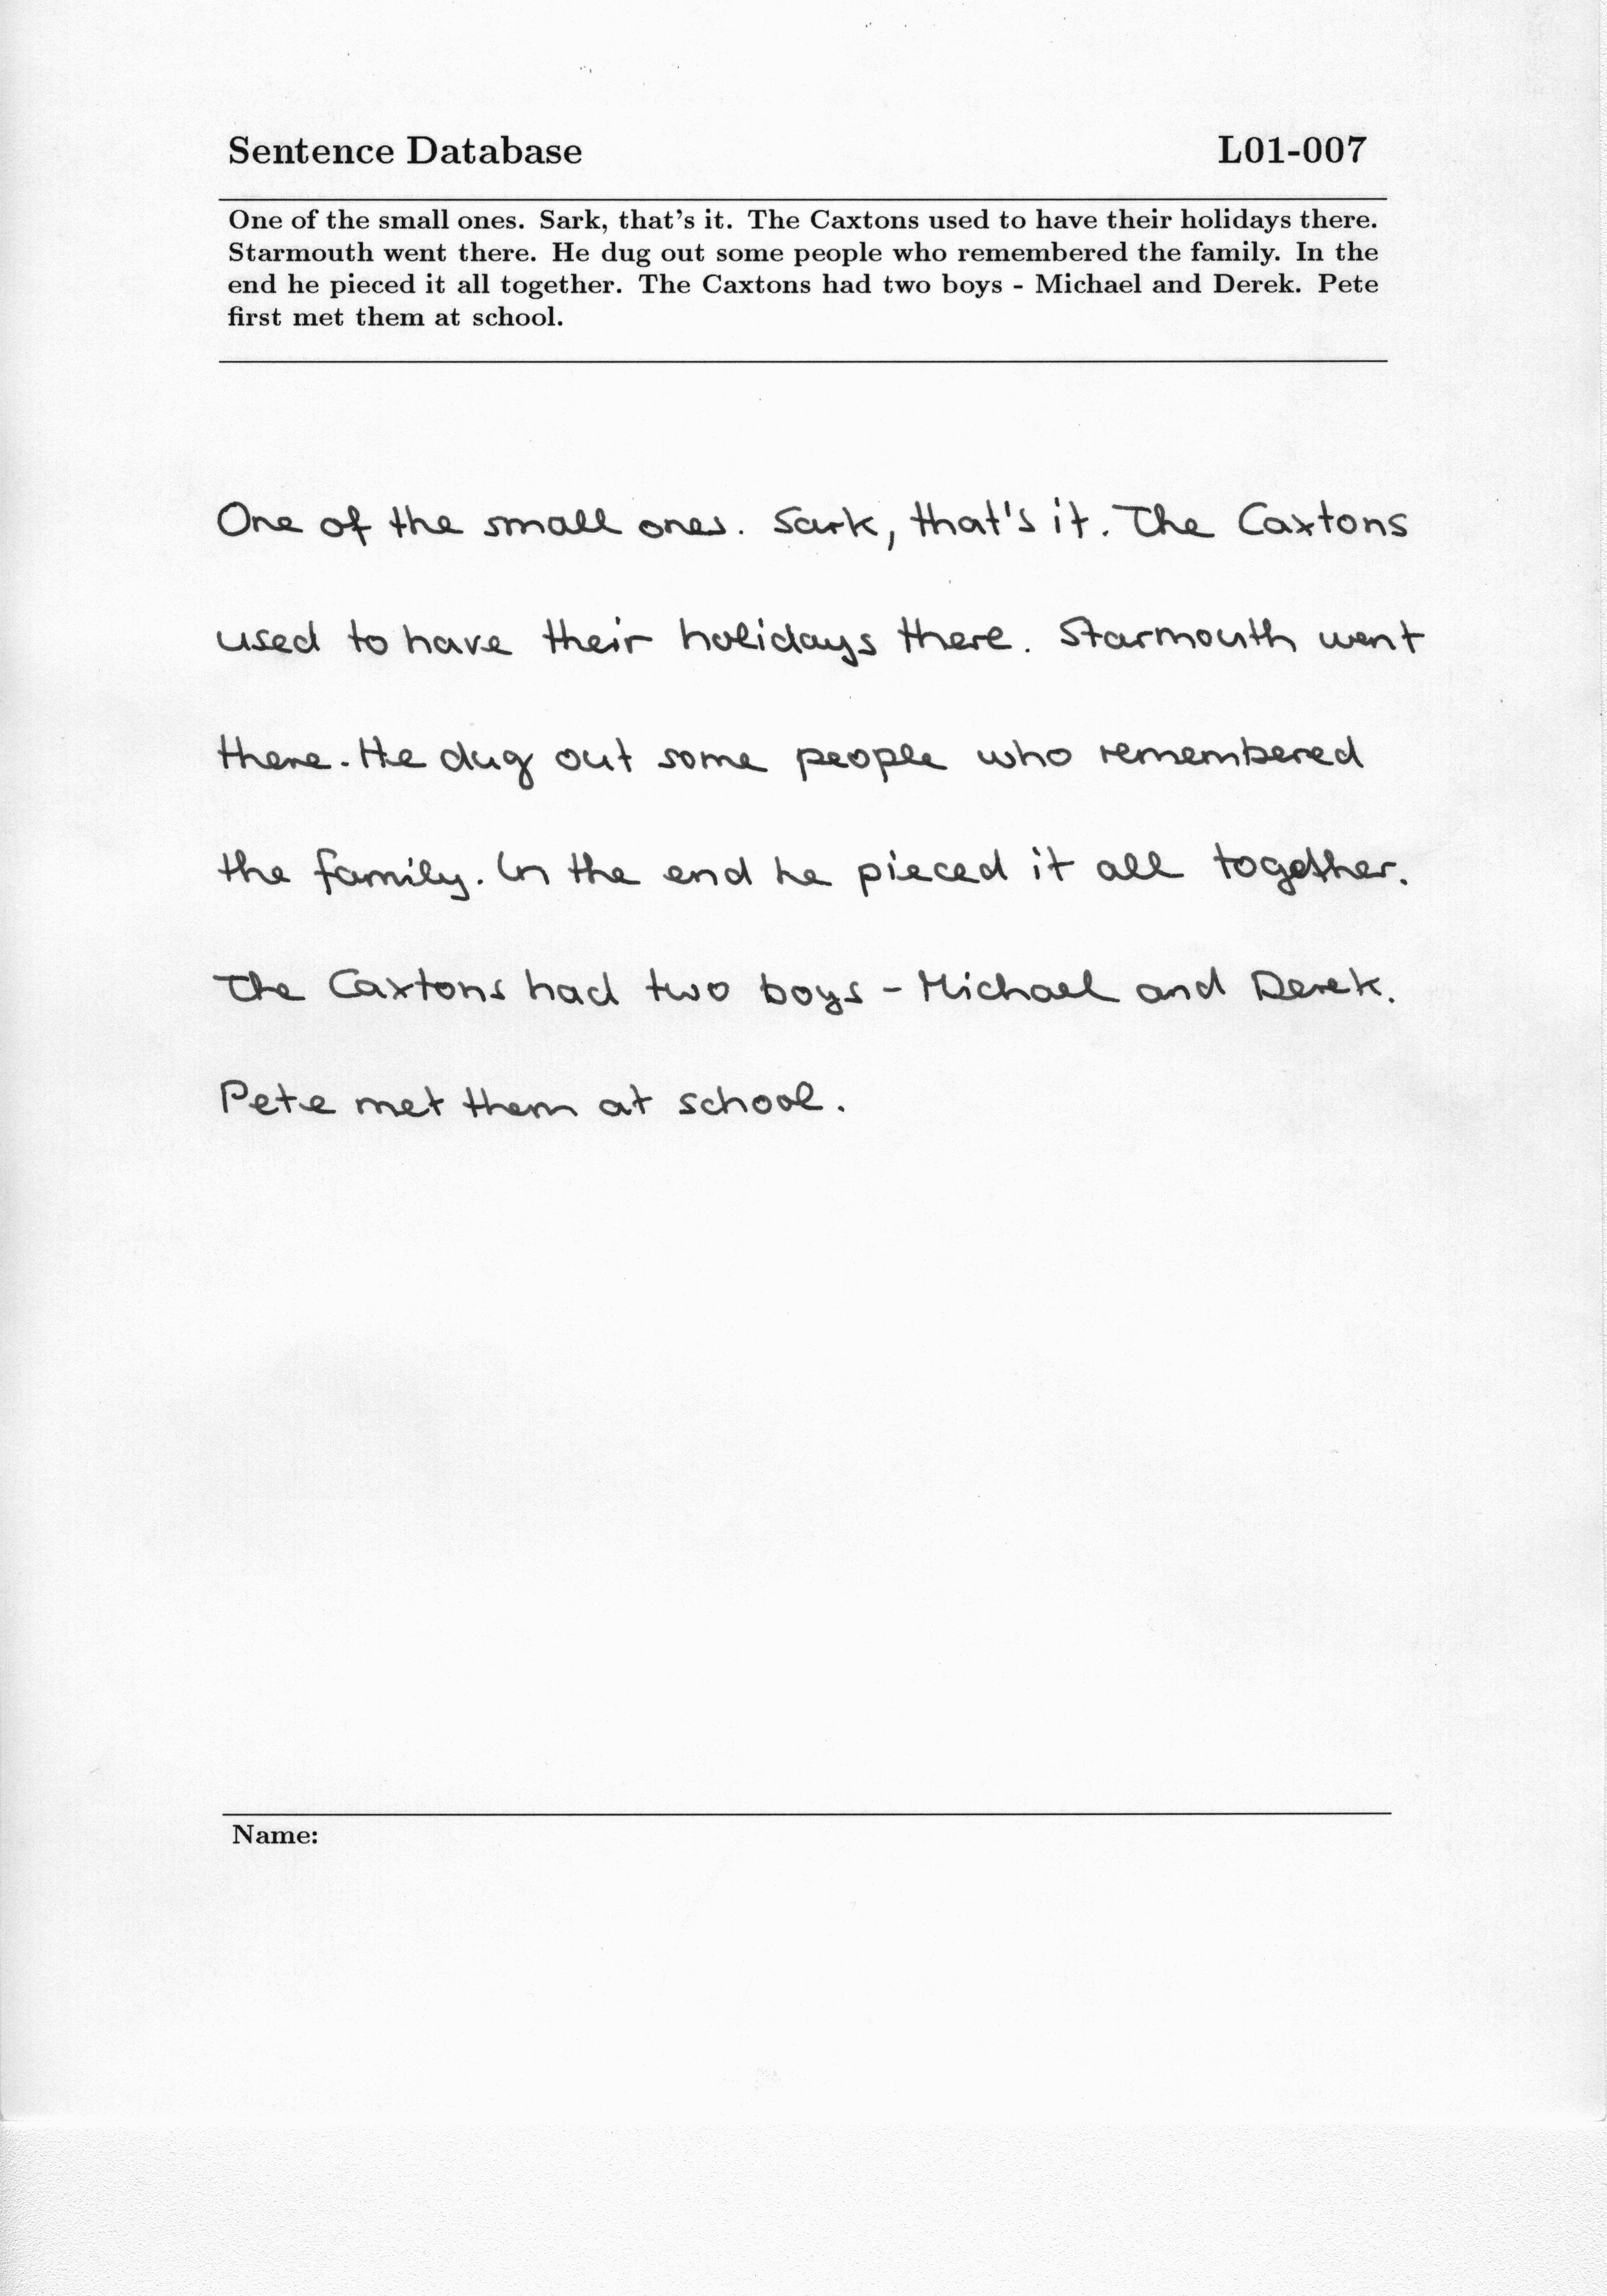 Sentence Database L01-007
One of the small ones. Sark, that's it. The Caxtons used to have their holidays there.
Starmouth went there. He dug out some people who remembered the family. In the
end he pieced it all together. The Caxtons had two boys - Michael and Derek. Pete
first met them at school.
One of the small ones. Sark, that's it. The Caxtons
used to have their holidays there. Starmouth went
there. He dug out some people who remembered
the family. In the end he pieced it all together.
The Caxtons had two boys - Michael and Derek.
Pete met them at school.
Name: